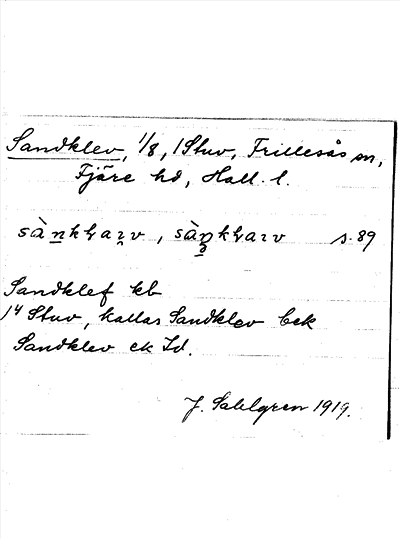 Sandklev, 1/8, 1 Stuv, Frillesås sn,
Fjäre hd, Hall. l.
s. 89
Sandklef kb
14 Stuv, kallas Sandklev bek
Sandklev ek Jd.
J. Sahlgren 1919.